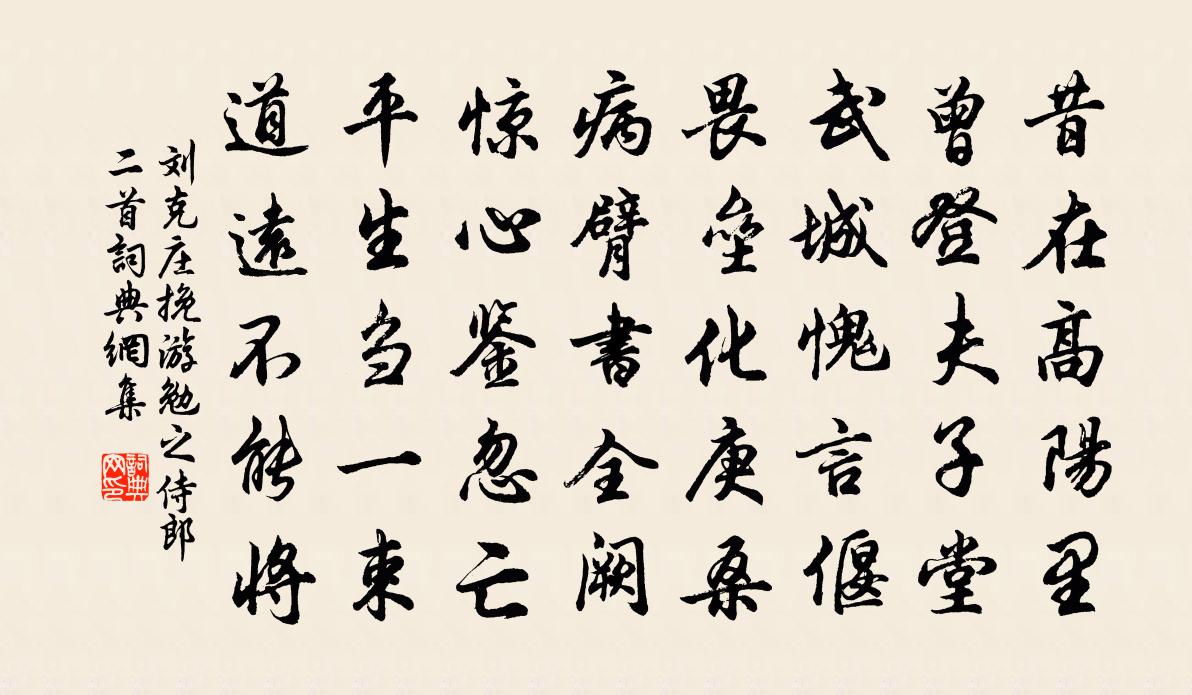 昔在高陽里
曾登夫子堂
武城愧言偃
畏壘化庚桑
病臂書全阙
惊心鉴忽亡
平生刍一束
道遠不能将
刘克庄挽游勉之侍郎
二首詞典網集
詞典
网印